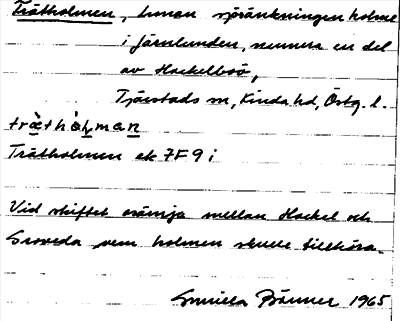 Trätholmen, innan sjösänkningen holme
i Järnlunden, numera en del
av Hackelboö,
Tjärstads sn, Kinda hd, Östg. l.
trä̀thòḷman
Trätholmen ek 7F9i
Vid skiftet osämja mellan Hackel och
Skoveda vem holmen skulle tillhöra.
Gunilla Bönner 1965